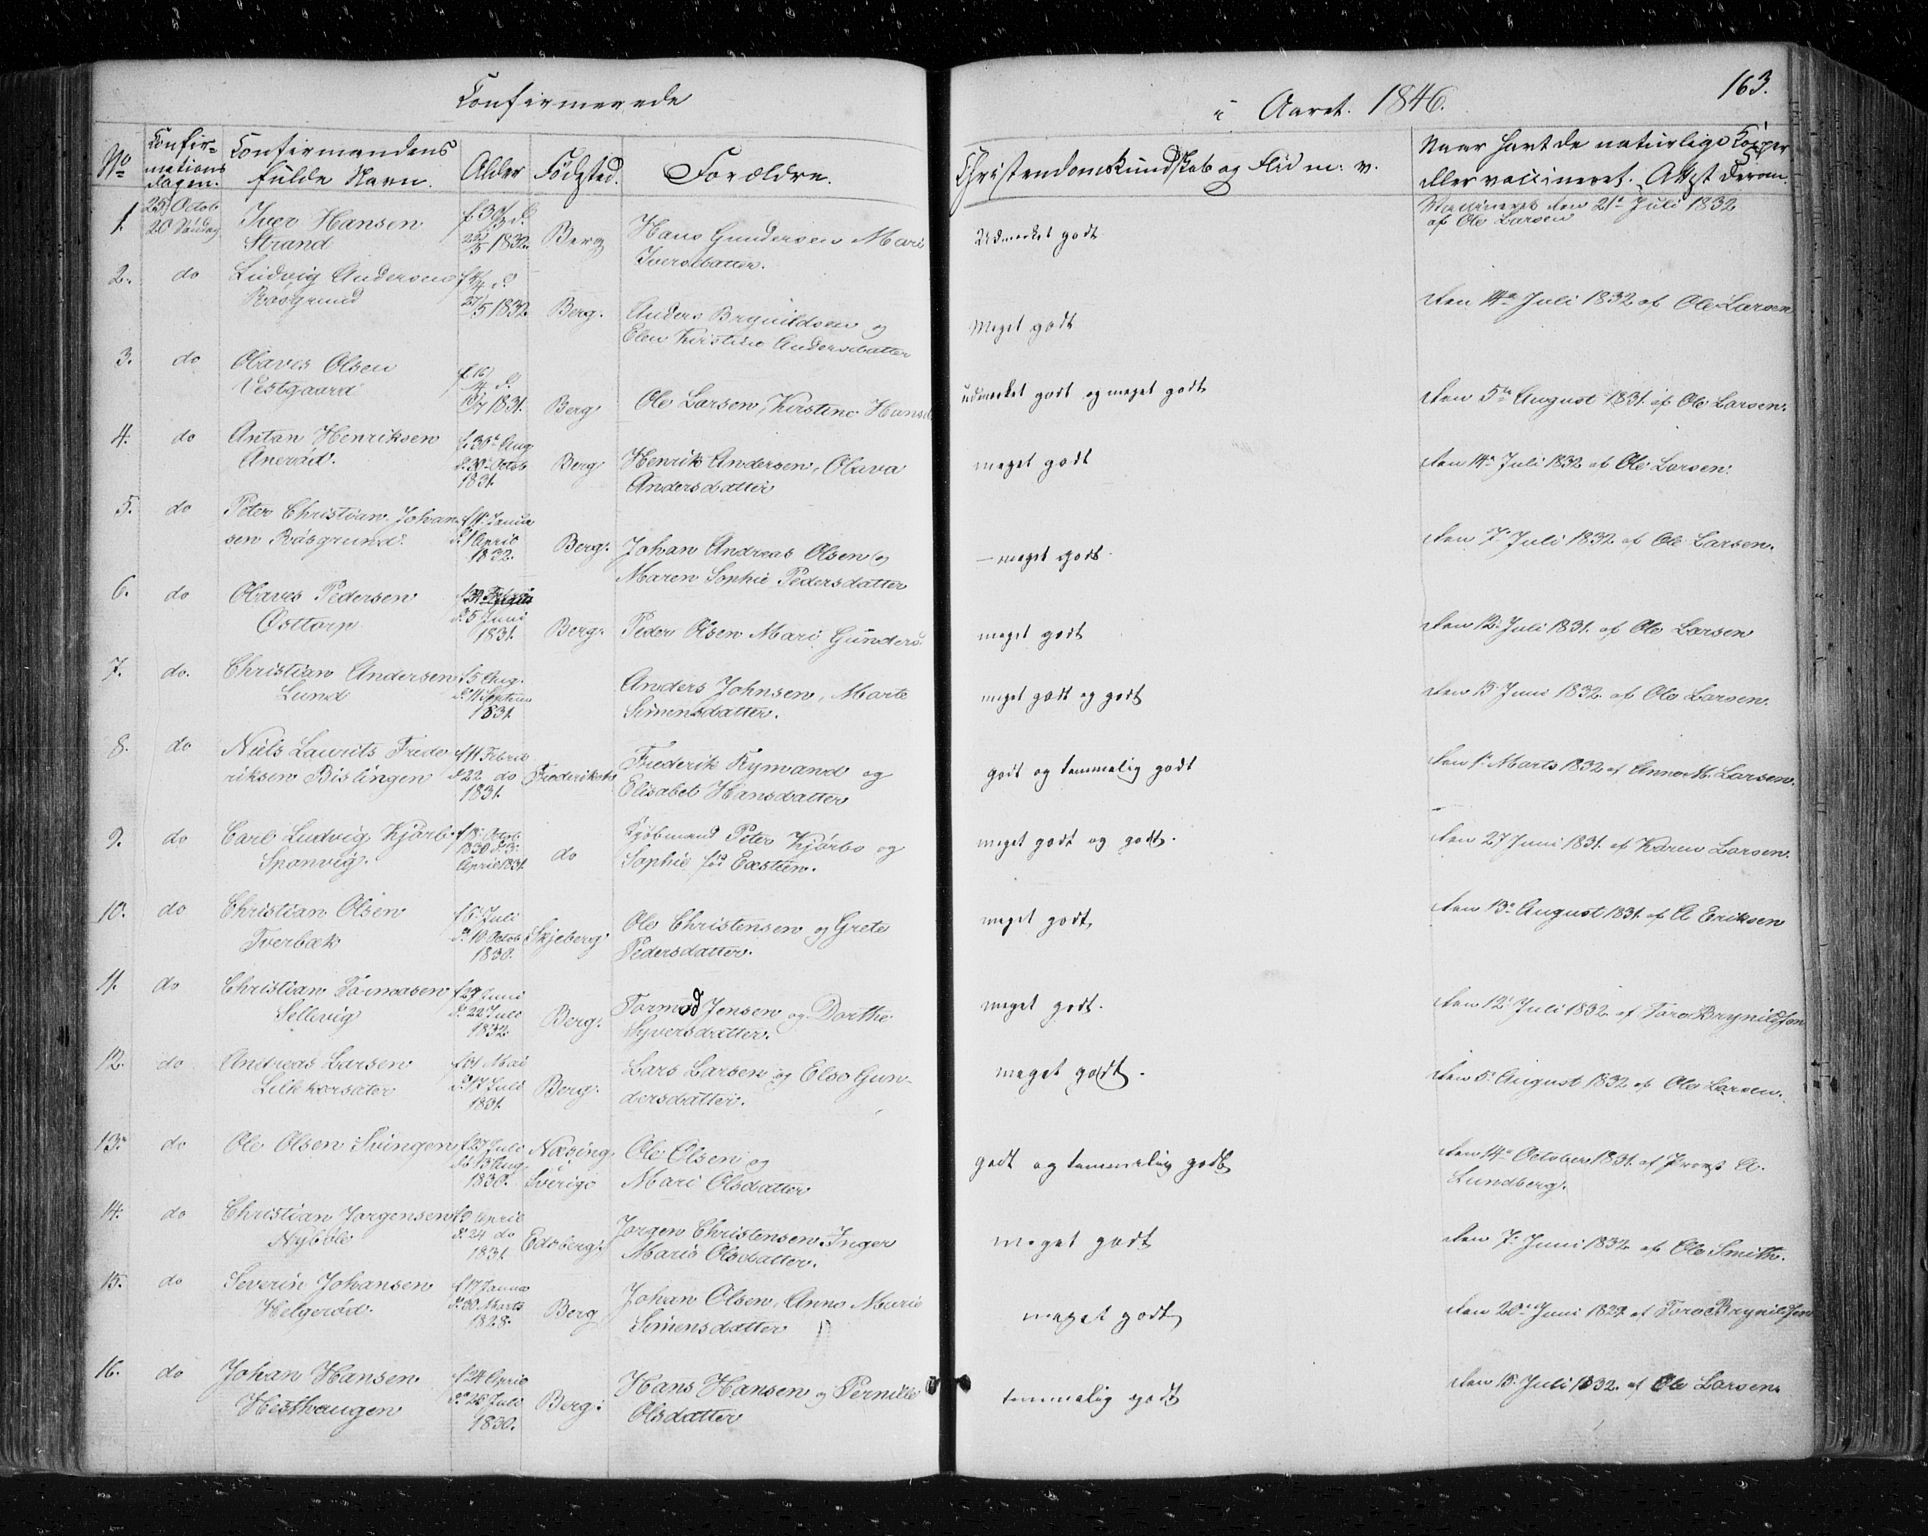 Confirmerede
i Aaret. 1846.
163.
No
Confir-
mations
dagen.
Confirmandens
fulde Navn.
Alder
Fødested.
Forældre.
Christendomskundskab og Flid m. v.
Naar havt de naturlige Kopper
eller vaccineret. Attest derom.
1. 25 Octob
20 Søndag
Iver Hansen
Strand
22/5 1832.
Berg
Hans Gundersen Mari
Iversdatter.
Udmerket godt
Vaccineret den 21de Juli 1832
af Ole Larsen
2. do
Ludvig Andersen
Røsgrund
27/5 1832.
Berg.
Anders Brynildsen og
Elen Kirstine Andersdatter
Meget godt
den 14de Juli 1832 af Ole Larsen
3. do
Olaves Olsen
Vestgaard
1831.
Berg.
Ole Larsen, Kirstine Hansd
udmerket godt og meget godt
den 5te August 1831. af Ole Larsen.
4. do
Anton Henriksen
Anerød.
f. 31te Aug
d. 30te Octob
1831.
Berg.
Henrik Andersen, Olava
Andersdatter
meget godt
den 14de Juli 1832 af Ole Larsen.
5. do
Peter Christian Johan
sen Røsgrund.
f 11te Janua
d. 1 April
1832.
Berg.
Johan Andreas Olsen og
Maren Sophie Pedersdatter
meget godt.
den 7de Juli 1832 af Ole Larsen.
6. do
Olaves Pedersen
Østtorp
d. 5 Juni
1831.
Berg.
Peder Olsen Mari Gunders.
meget godt
den 12. Juli 1831. af Ole Larsen
7. do.
Christian Andersen
Lund
f. 5 Aug.
d. 11 Septem
1831.
Anders Johnsen, Marte
Simensdatter.
meget godt og godt
den 13. Juni 1832. af Ole Larsen.
8. do
Niels Laurits Frede
riksen Bislingen
f 11 Febru
d. 22 do
1831.
Frederiksh.
Frederik Rymand og
Elisabet Hansdatter
godt og temmelig godt
den 1. Marts 1832 af Anne M. Larsen.
9. do
Carl Ludvig Kjørbo
Sponvig.
f 18. Octob.
1830 d. 3.
April 1831
do
Kjøbmand Peter Kjørbo og
Sophie fød Exstien.
meget godt og godt.
den 27 Juni 1831. af Karen Larsen.
10. do
Christian Olsen
Tverbæk
f 6. Juli
d. 10 Octob
1830.
Skjeberg.
Ole Christensen og Grete
Pedersdatter.
meget godt,
den 13de August 1831. af A Eriksen
11. do
Christian Tormodsen
Sellevig
f 29 Juni
d. 22 Juli
1832
Berg.
Tormod Jensen og Dorthe
Syversdatter.
meget godt.
den 12. Juli 1832 af Tore Brynildsen
12. do
Andreas Larsen
Lille korsæter
f 31 Mai
d. 17 Juli
1831.
Berg.
Lars Larsen og Else Gun-
dersdatter.
meget godt.
den 5. August 1832 af Ole Larsen.
13. do
Ole Olsen Svingen
f. 27 Juli
d. 13 Aug.
1830.
Næsing
i
Sverige
Ole Olsen og
Mari Olsdatter
godt og temmelig godt
den 14de October 1831. af Provst A.
Lundberg.
14. do
Christian Jørgensen
Nybøle
April
d. 24 do
1831.
Edsberg.
Jørgen Christensen Inger
Marie Olsdatter.
meget godt
den 7. Juni 1832 af Ole Smith.
15. do
Severin Johansen
Helgerød.
f 17 Janua
d. 30 Marts
1828.
Berg
Johan Olsen, Anne Marie
Simensdatter
meget godt
den 20de Juni 1829 af Tore Brynildsen
16. do
Johan Hansen
Hesthaugen
f 24 April
d. 26 Juli
1830.
Berg.
Hans Hansen og Pernille
Olsdatter
temmelig godt
den 13. Juli 1832. af Ole Larsen